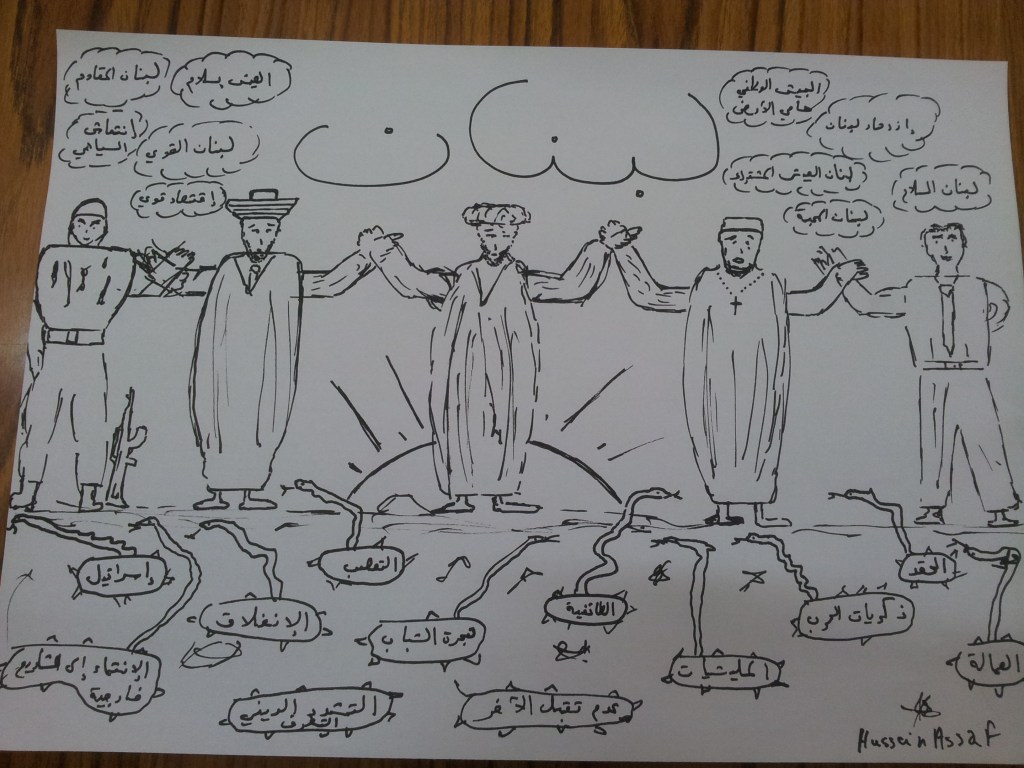 لبنان
لبنان المقاوم
العيش بسلام
إنتعاش
السياحي
لبنان القوي
إقتصاد قوي
الجيش الوطني
حامي الأرض
إزدهار لبنان
لبنان العيش المشترك
لبنان السلام
لبنان المحبة
إسرائيل
التعصب
الحقد
الإنغلاق
الطائفية
ذكريات الحرب
هجرة الشباب
العمالة
الإنتماء إلى المشاريع
خارجية
المليشيات
التشدد الديني
التطرف
عدم تقبل الآخر
Hussein Assaf